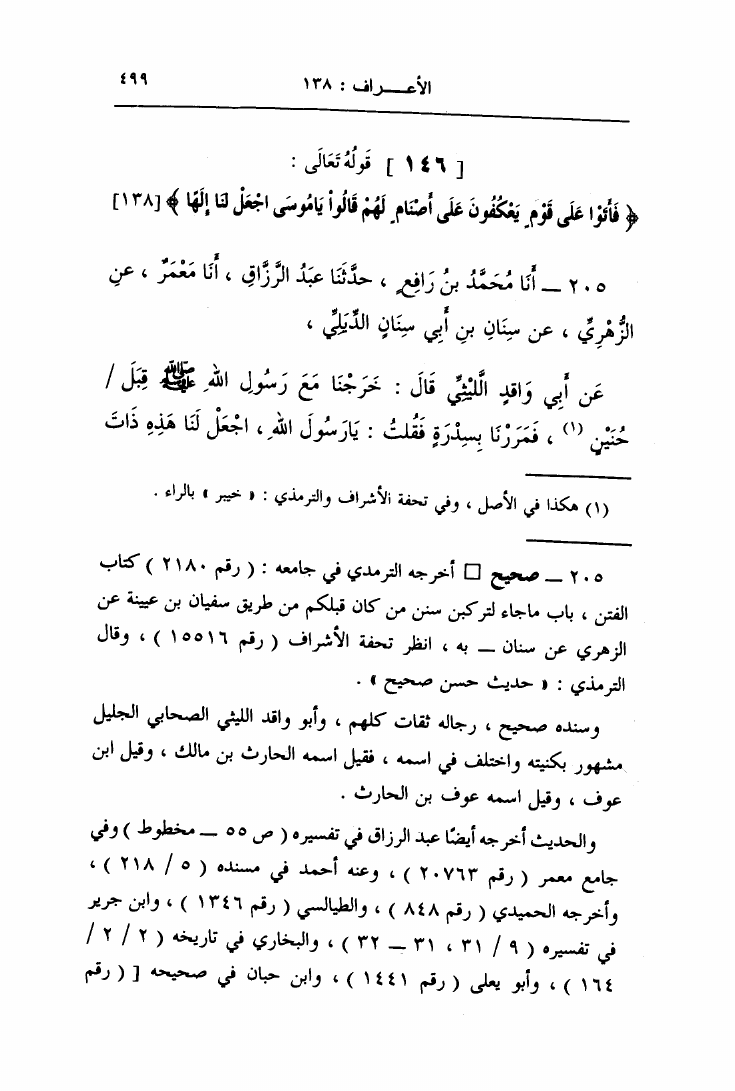 الأعـــراف : ١٣٨
٤٩٩
[ ١٤٦ ] قَولُهُ تَعَالَى :
﴿ فَأَتَوْا عَلَى قَوْمٍ يَعْكُفُونَ عَلَى أَصْنَامٍ لَهُمْ قَالُواْ يَامُوسَى اجْعَلْ لَنَا إِلَهًا ﴾ [١٣٨]
٢٠٥ ــ أَنَا مُحَمَّدُ بنُ رَافِعٍ ، حدَّثَنَا عَبدُ الرَّزَّاقِ ، أَنَا مَعْمَرٌ ، عنِ
الزُّهْرِيِّ ، عن سِنَانِ بنِ أَبِي سِنَانٍ الدِّيَلِيِّ ،
عَن أَبِي وَاقدٍ الَّليْثِيِّ قَالَ : خَرَجْنَا مَعَ رَسُولِ اللهِ ﷺ قِبَلَ /
حُنَيْنٍ (١) ، فَمَرَرْنَا بِسِدْرَةٍ فَقُلتُ : يَارَسُولَ اللهِ ، اجْعَلْ لَنَا هَذِهِ ذَاتَ
(١) هكذا في الأصل ، وفي تحفة الأشراف والترمذي : « خيبر » بالراء .
٢٠٥ ــ صحيح □ أخرجه الترمدي في جامعه : ( رقم ٢١٨٠ ) كتاب
الفتن ، باب ماجاء لتركبن سنن من كان قبلكم من طريق سفيان بن عيينة عن
الزهري عن سنان ــ به ، انظر تحفة الأشراف ( رقم ١٥٥١٦ ) ، وقال
الترمذي : « حديث حسن صحيح » .
وسنده صحيح ، رجاله ثقات كلهم ، وأبو واقد الليثي الصحابي الجليل
مشهور بكنيته واختلف في اسمه ، فقيل اسمه الحارث بن مالك ، وقيل ابن
عوف ، وقيل اسمه عوف بن الحارث .
والحديث أخرجه أيضًا عبد الرزاق في تفسيره ( ص ٥٥ ــ مخطوط ) وفي
جامع معمر ( رقم ٢٠٧٦٣ ) ، وعنه أحمد في مسنده ( ٥ / ٢١٨ ) ،
وأخرجه الحميدي ( رقم ٨٤٨ ) ، والطيالسي ( رقم ١٣٤٦ ) ، وابن جرير
في تفسيره ( ٩ / ٣١ ، ٣١ ــ ٣٢ ) ، والبخاري في تاريخه ( ٢ / ٢ /
١٦٤ ) ، وأبو يعلى ( رقم ١٤٤١ ) ، وابن حبان في صحيحه [ ( رقم